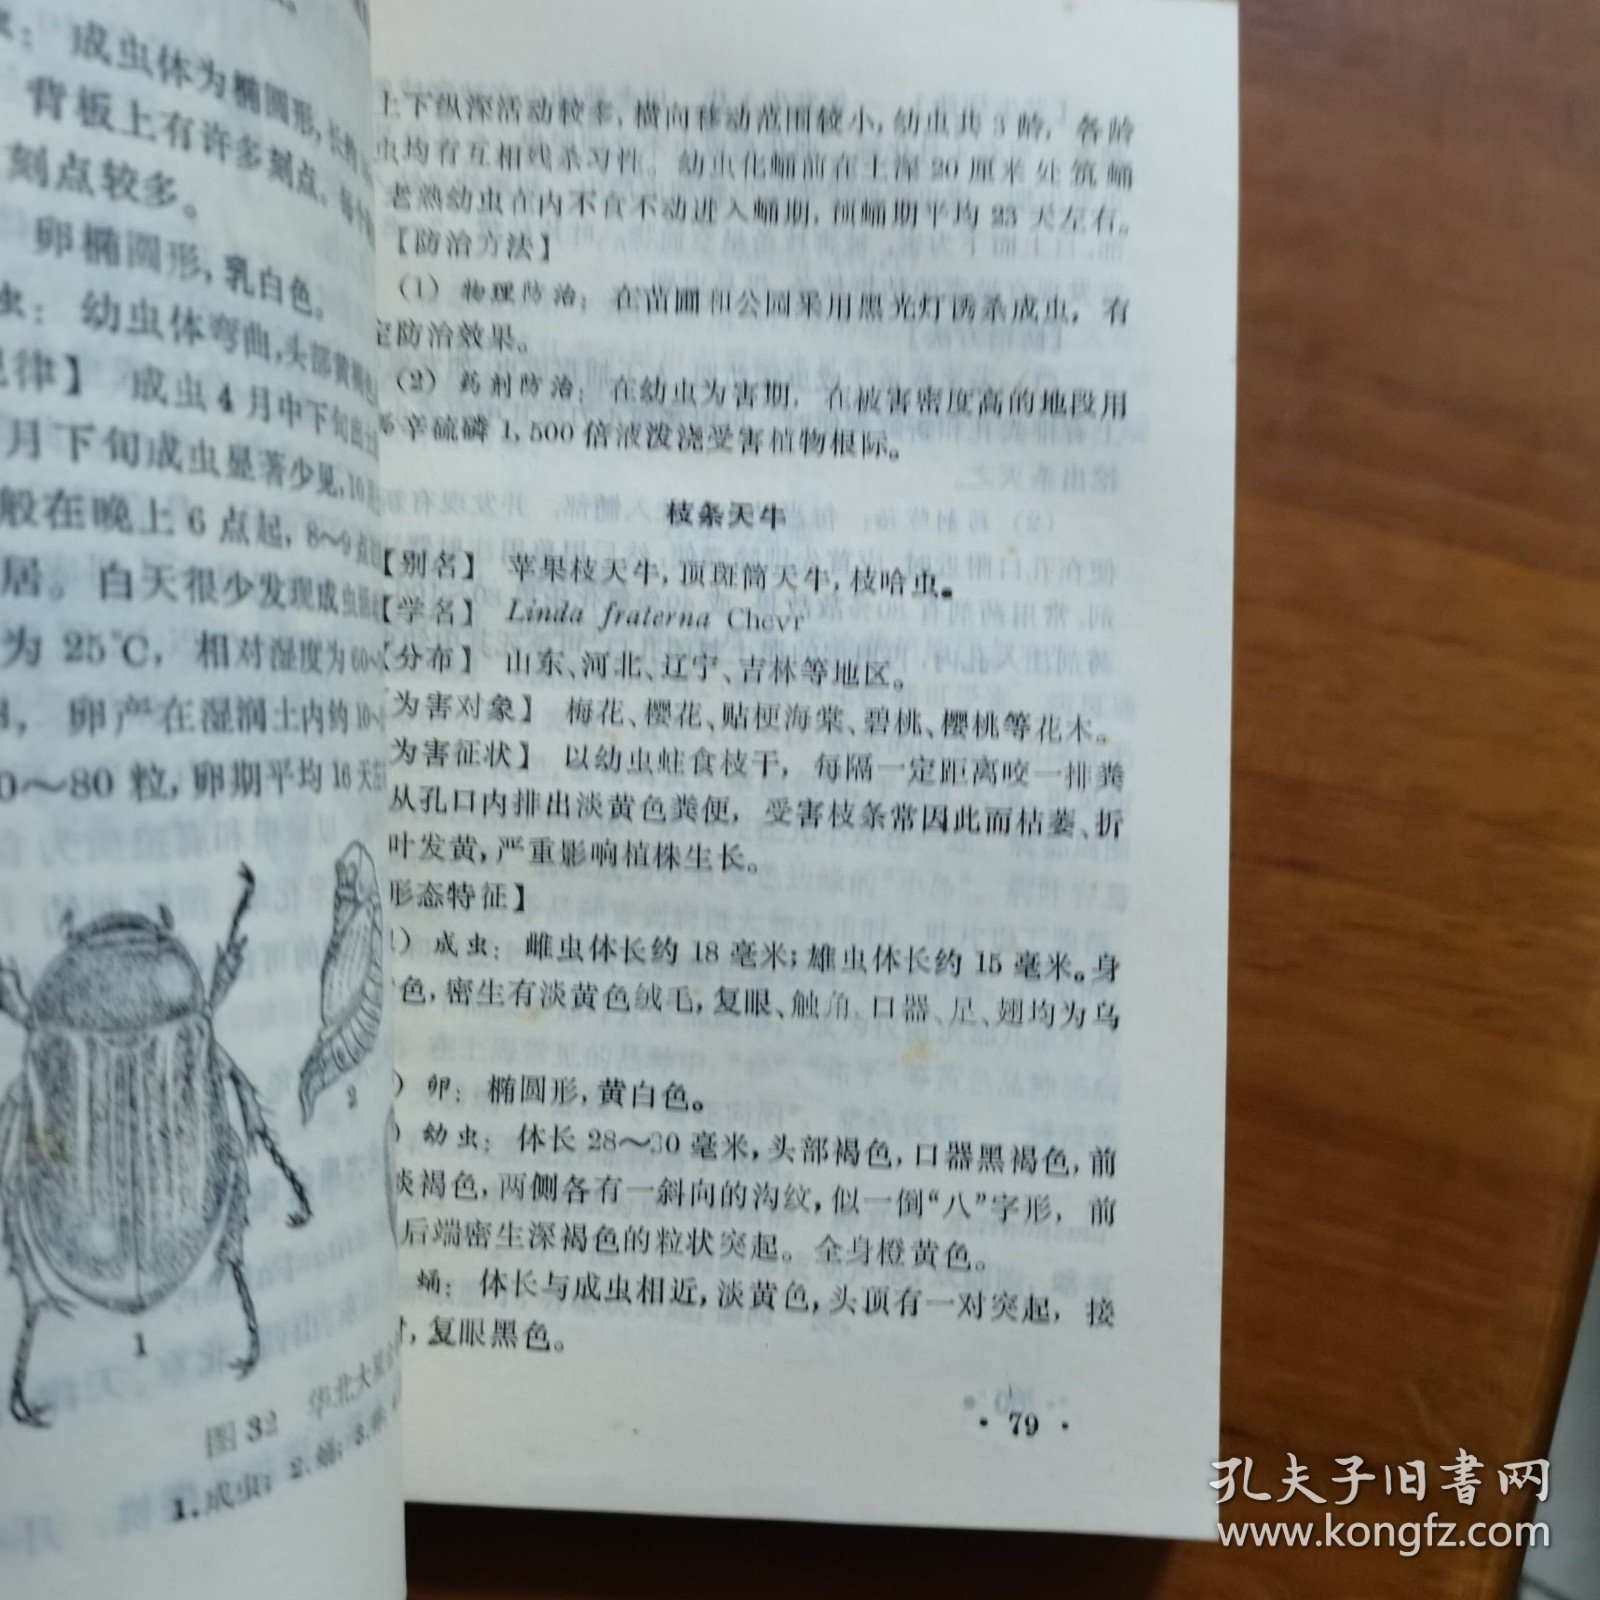 ：成虫体为椭圆形，长约
背板上有许多刻点。每个
刻点较多。
卵椭圆形，乳白色。
虫：幼虫体弯曲，头部黄褐色
律】 成虫4月中下旬出土
月下旬成虫显著少见，10
般在晚上6点起，8～9点
居。白天很少发现成虫
为 25℃，相对湿度为60～
卵产在湿润土内约10～
0～80粒，卵期平均16天左
1
2
图32 华北大黑
1.成虫；2.蛹；3.
上下纵深活动较多，横向移动范围较小，幼虫共3龄，各龄
虫均有互相残杀习性。幼虫化蛹前在土深20厘米处筑蛹
老熟幼虫在内不食不动进入蛹期，预蛹期平均23天左右。
【防治方法】
（1）物理防治：在苗圃和公园采用黑光灯诱杀成虫，有
定防治效果。
（2）药剂防治：在幼虫为害期，在被害密度高的地段用
辛硫磷1,500倍液泼浇受害植物根际。
枝条天牛
【别名】 苹果枝天牛，顶斑筒天牛，枝哈虫。
【学名】 Linda fraterna Chevr
【分布】 山东、河北、辽宁、吉林等地区。
为害对象】 梅花、樱花、贴梗海棠、碧桃、樱桃等花木。
为害征状】 以幼虫蛀食枝干，每隔一定距离咬一排粪
从孔口内排出淡黄色粪便，受害枝条常因此而枯萎、折
叶发黄，严重影响植株生长。
形态特征】
）成虫：雌虫体长约18毫米；雄虫体长约15毫米。身
色，密生有淡黄色绒毛，复眼、触角、口器、足、翅均为乌
）卵：椭圆形，黄白色。
）幼虫：体长28～30毫米，头部褐色，口器黑褐色，前
淡褐色，两侧各有一斜向的沟纹，似一倒“八”字形，前
后端密生深褐色的粒状突起。全身橙黄色。
蛹：体长与成虫相近，淡黄色，头顶有一对突起，接
，复眼黑色。
· 79 ·
孔夫子旧书网
www.kongfz.com